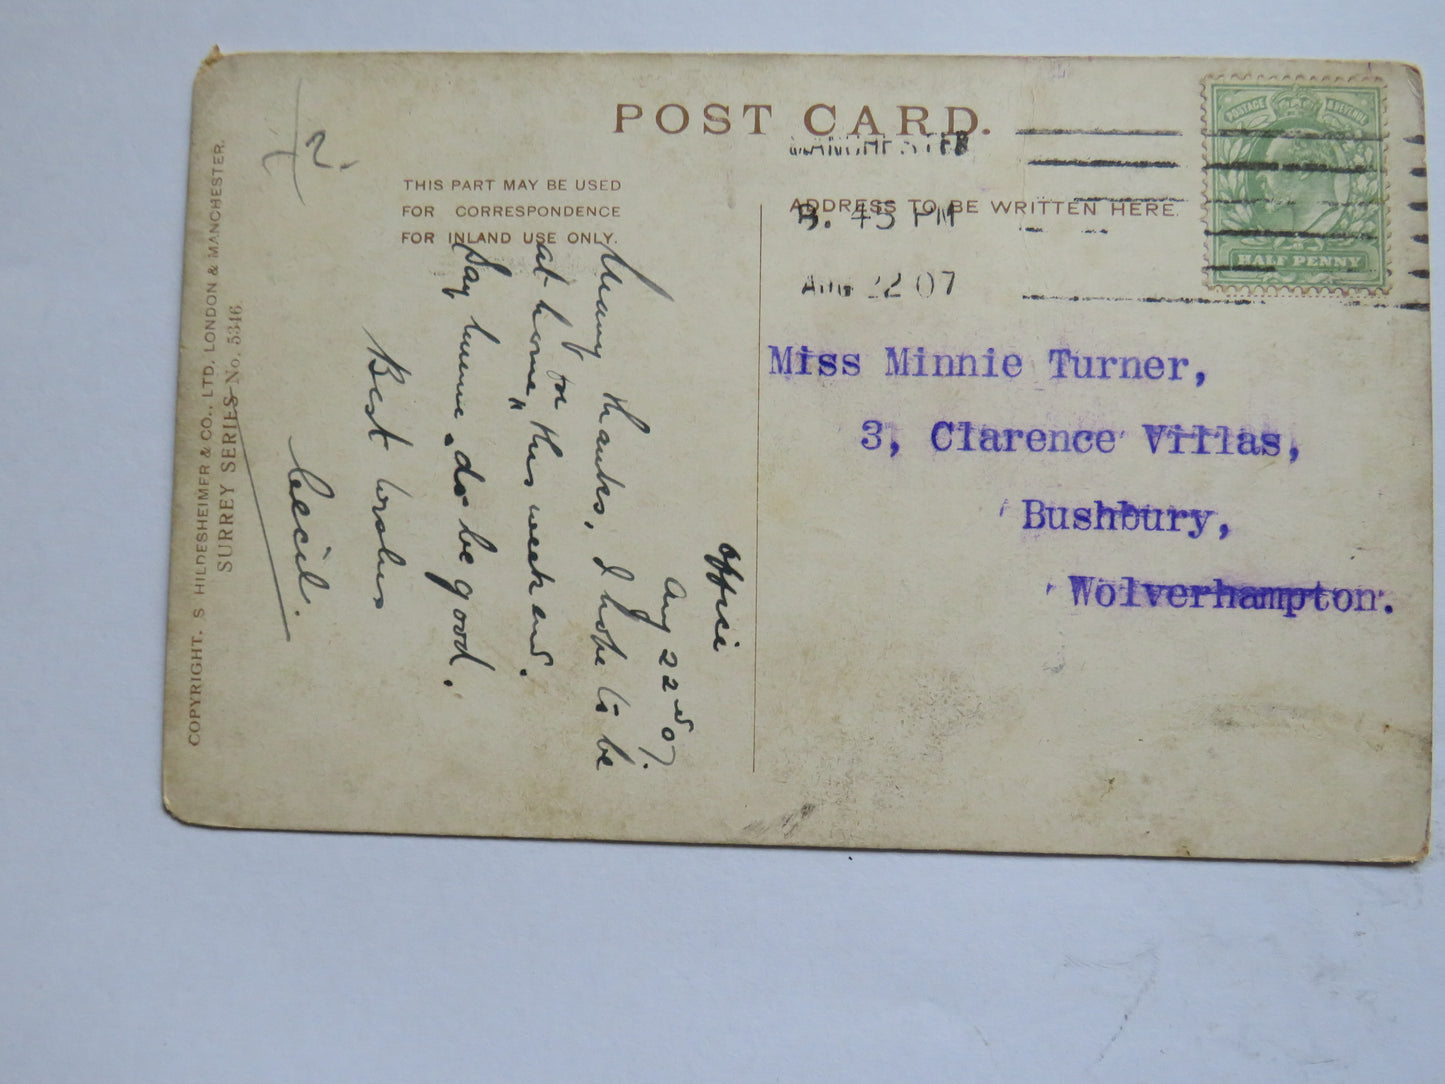 POST CARD.
THIS PART MAY BE USED
FOR CORRESPONDENCE
FOR INLAND USE ONLY.
ADDRESS TO BE WRITTEN HERE.
MANCHESTER
45 PM
AUG 22 07
POSTAGE & REVENUE
HALF PENNY
Miss Minnie Turner,
3, Clarence Villas,
Bushbury,
Wolverhampton.
Office
Aug 22nd 07.
Many thanks, I hope to be
at home, for this week end.
Day hume do be good.
Best wishes
Cecil.
2.
COPYRIGHT. S HILDESHEIMER & CO., LTD. LONDON & MANCHESTER.
SURREY SERIES No. 5346